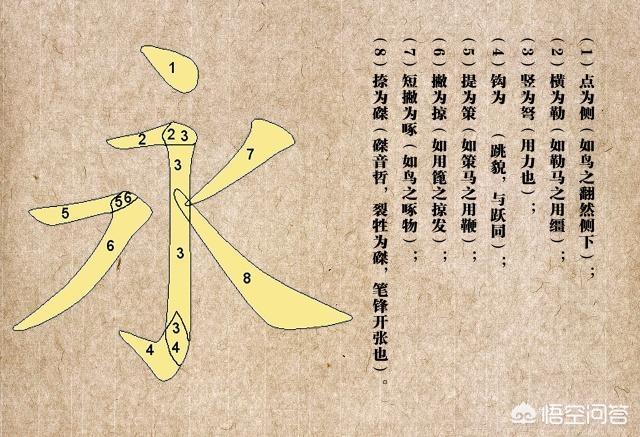 1
2
2 3
3
7
5
56
6
3
8
3
4
4
(1)点为侧(如鸟之翻然侧下);
(2)横为勒(如勒马之用缰);
(3)竖为弩(用力也);
(4)钩为 (跳貌,与跃同);
(5)提为策(如策马之用鞭);
(6)撇为掠(如用篦之掠发);
(7)短撇为啄(如鸟之啄物);
(8)捺为磔(磔音哲,裂牲为磔,笔锋开张也)。
悟空问答